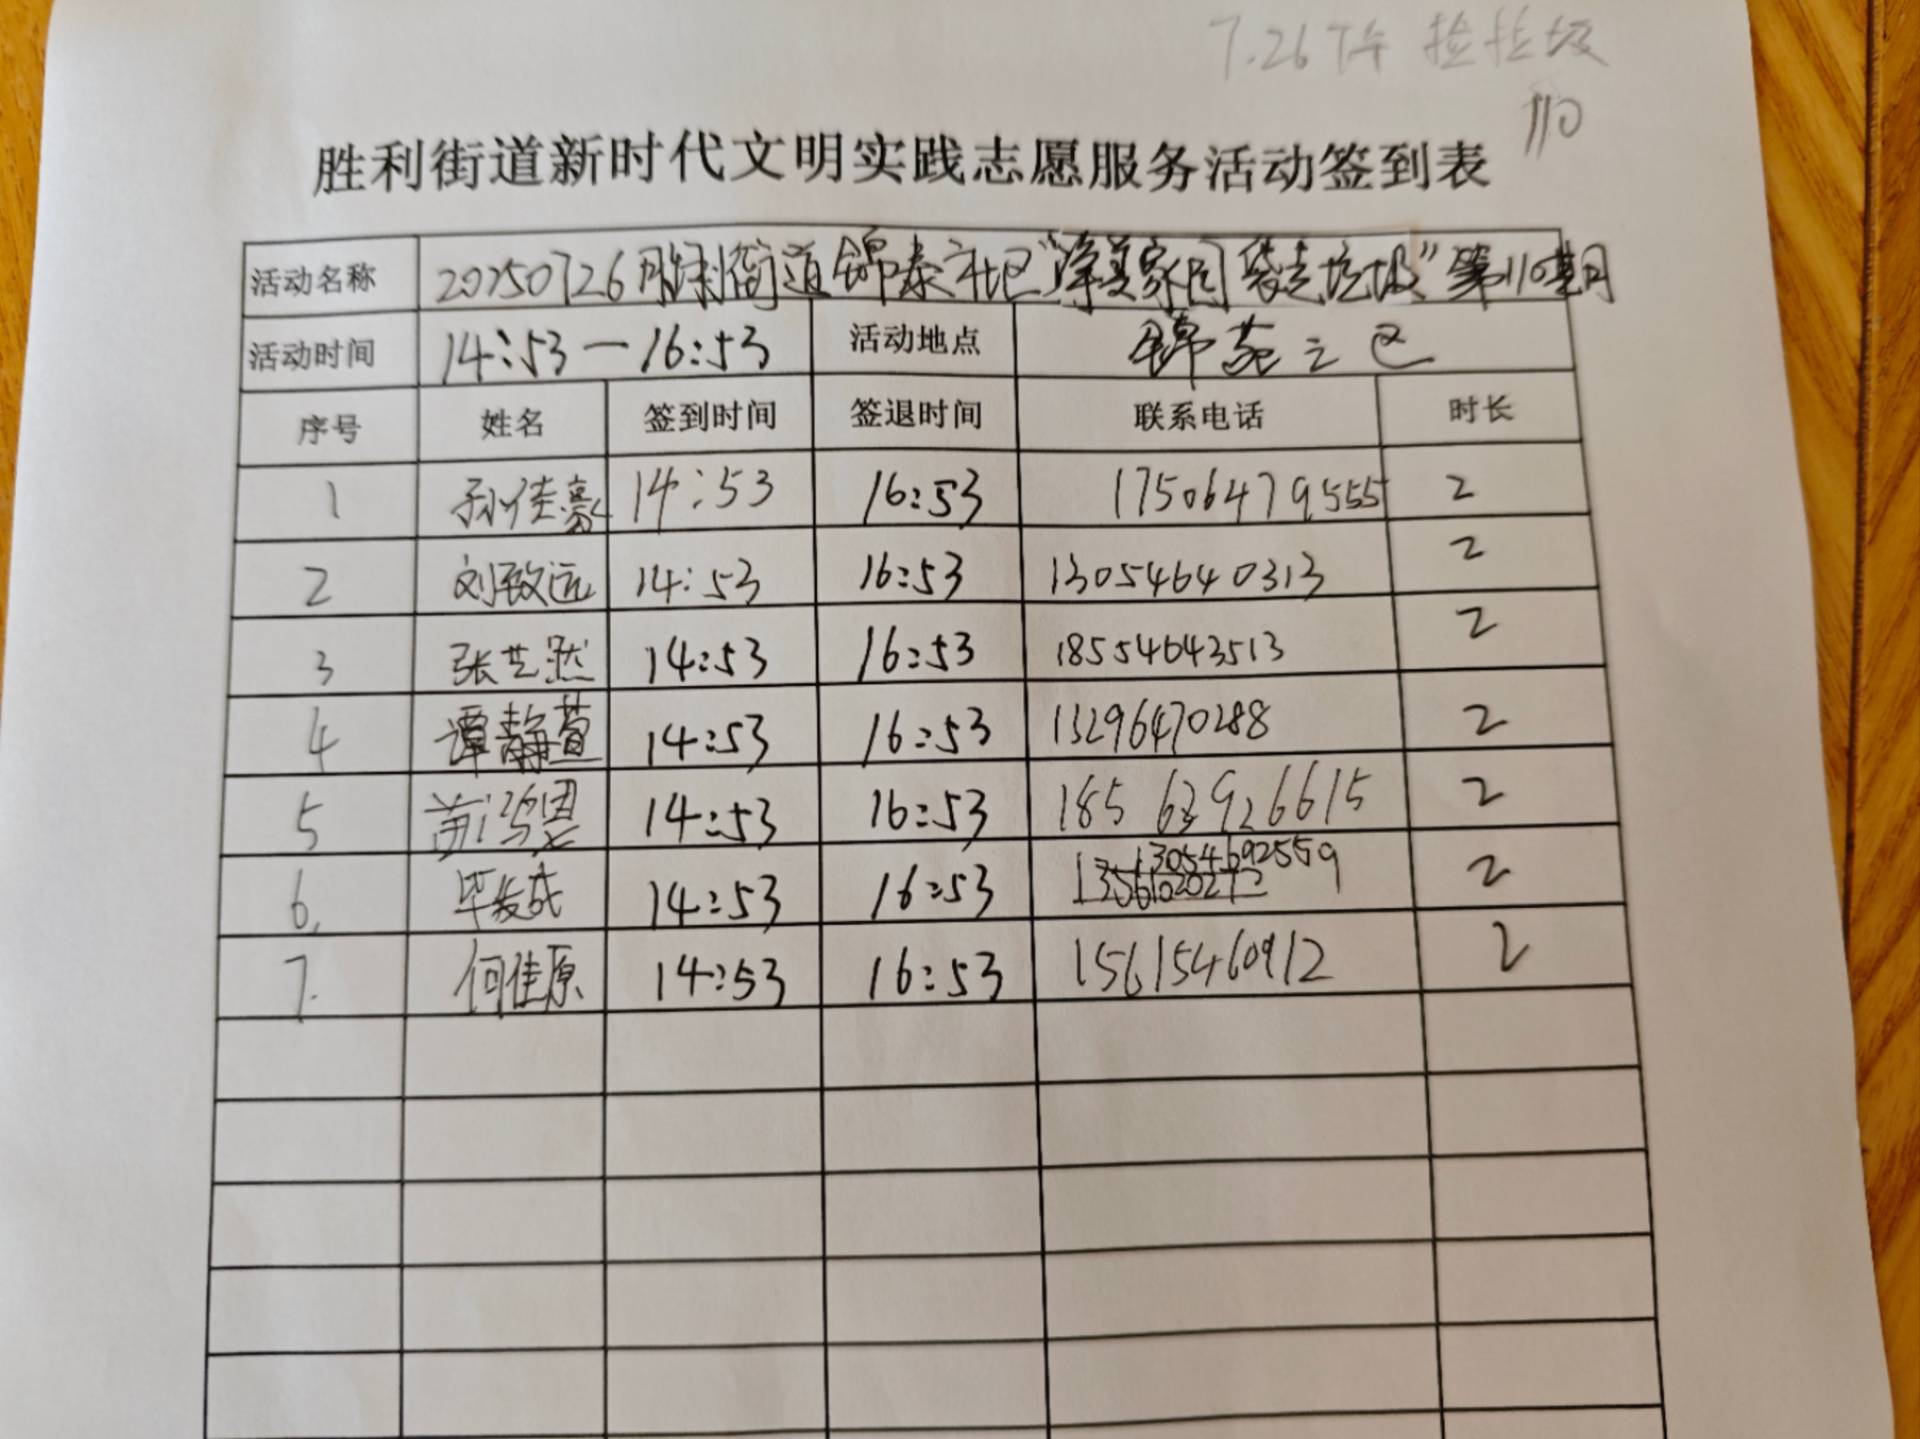 7.26 下午 捡垃圾
110
胜利街道新时代文明实践志愿服务活动签到表
活动名称 20250726胜利街道锦泰社区"净美家园 袋走垃圾"第110期
活动时间 14:53—16:53 活动地点 锦苑三区
序号 姓名 签到时间 签退时间 联系电话 时长
1 孙佳豪 14:53 16:53 17506479555 2
2 刘致远 14:53 16:53 13054640313 2
3 张艺然 14:53 16:53 18554643513 2
4 谭静萱 14:53 16:53 13296470288 2
5 14:53 16:53 18563926615 2
6. 毕发成 14:53 16:53 13054692559 2
7. 何佳原 14:53 16:53 15615460912 2